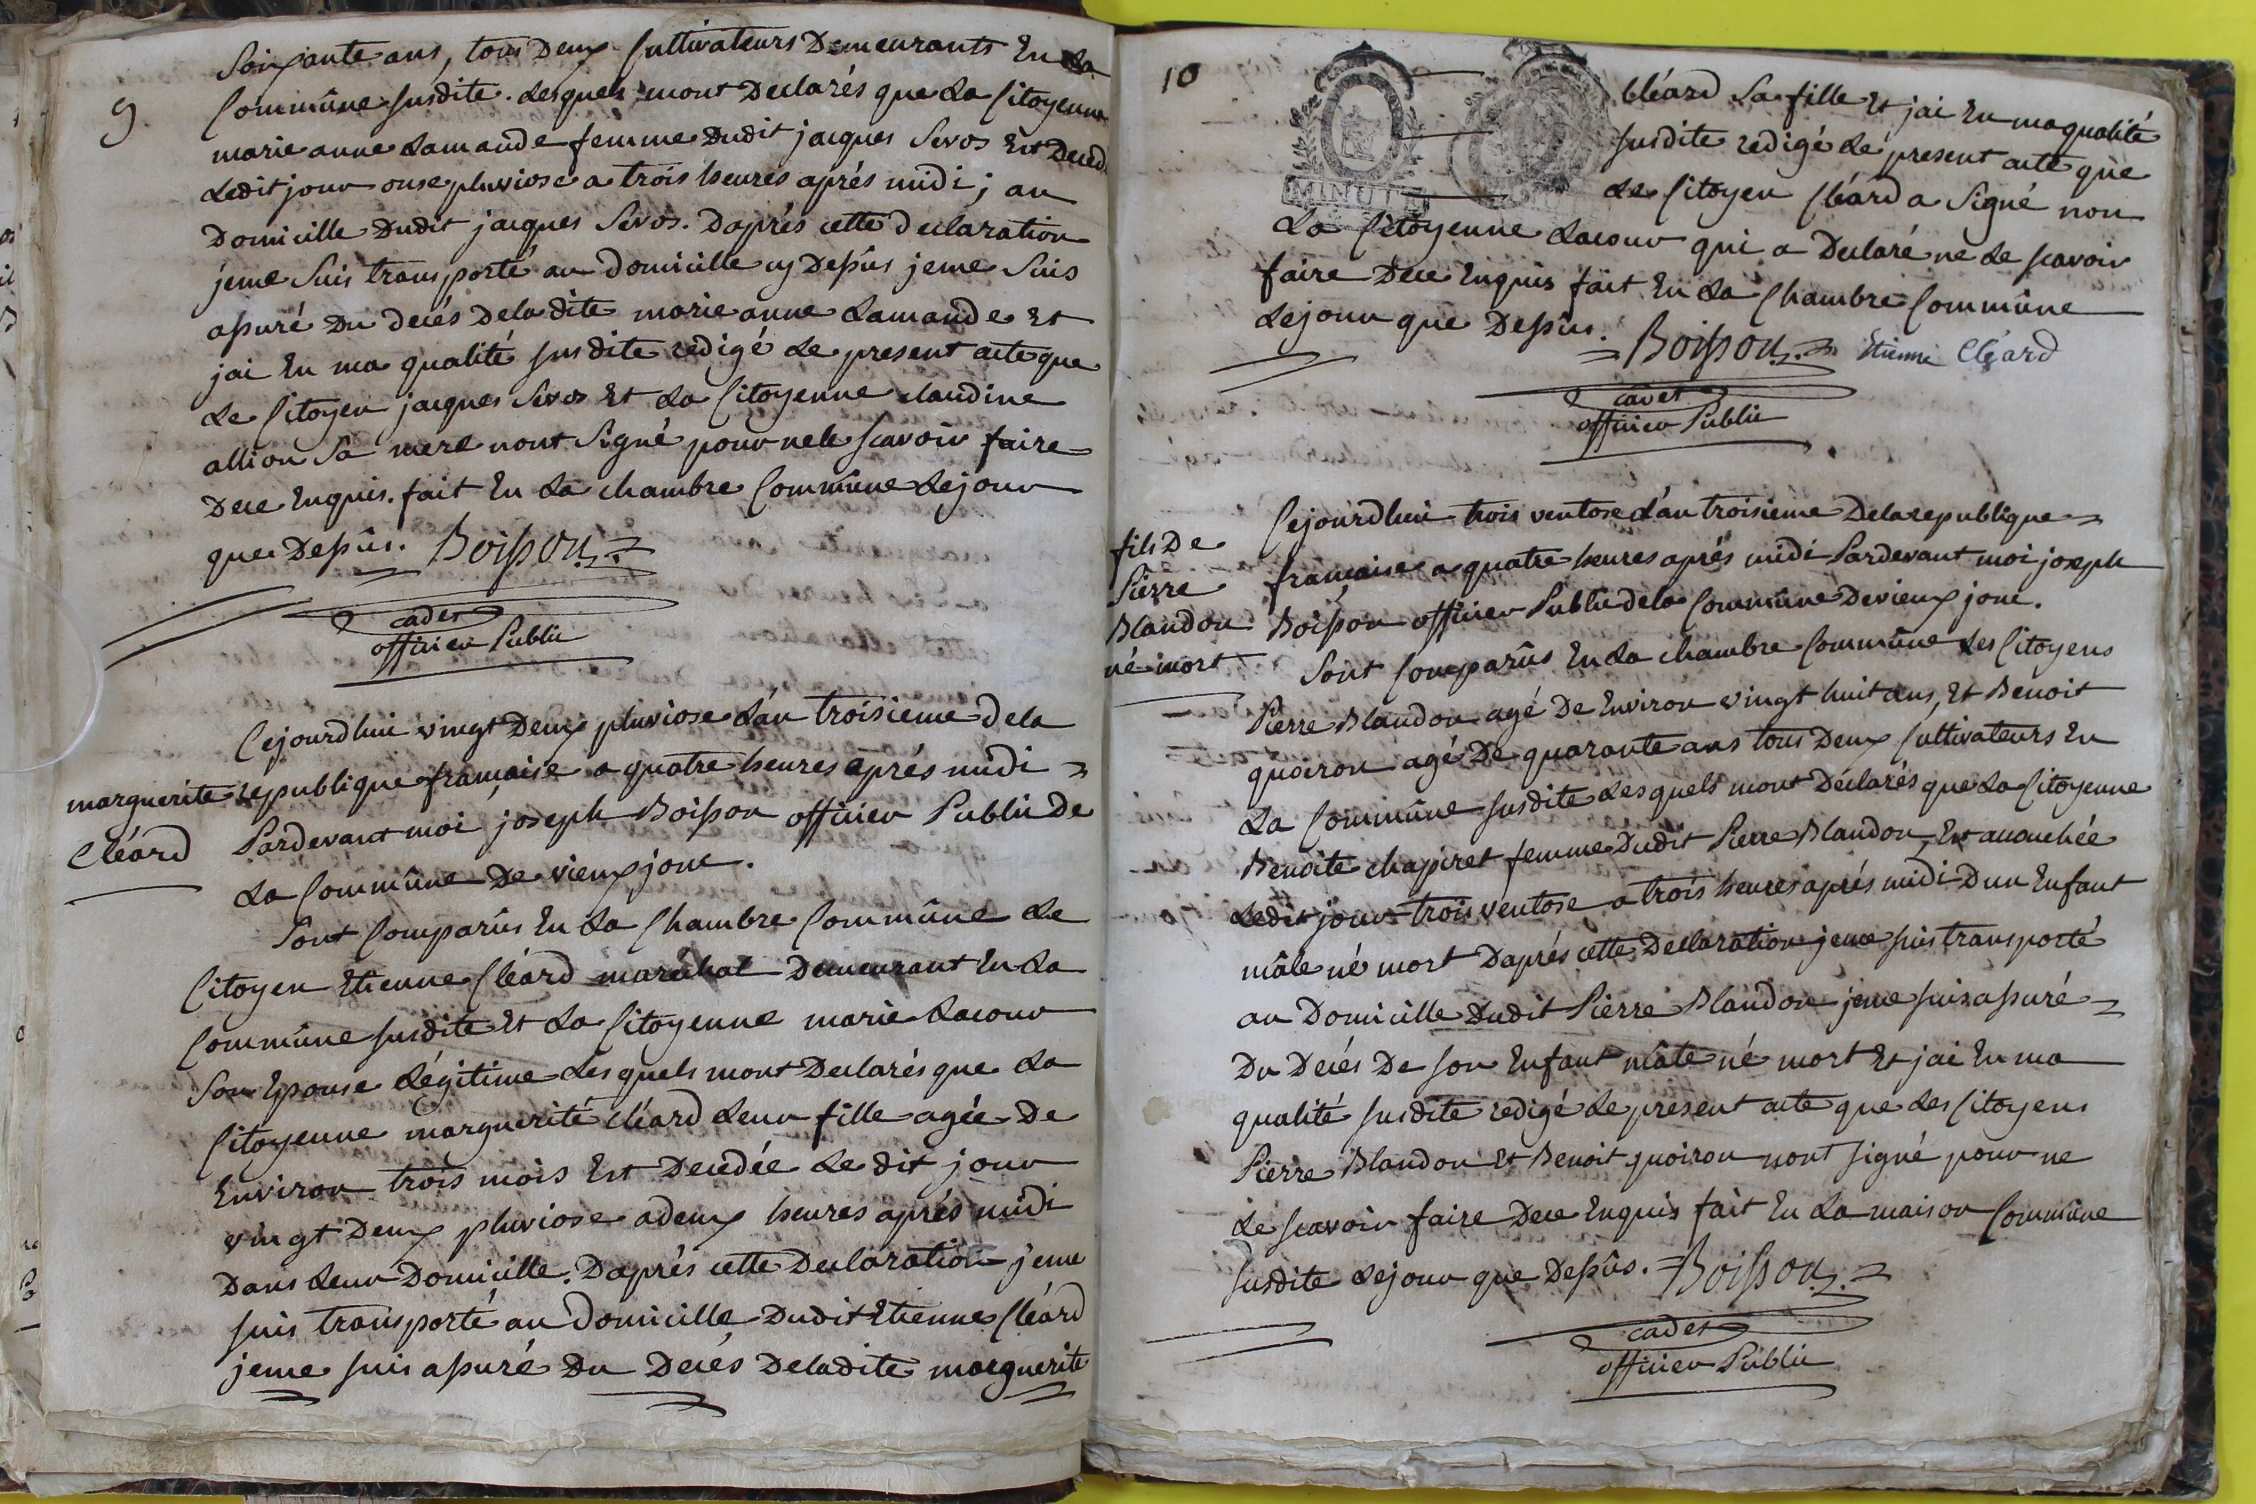 9
Soixante ans, tous Deux Cultivateurs Demeurants En La
Commûne susdite. Lesquels mont Declarés que La Citoyenne
marie anne Lamande femme dudit jacques Sivos Est Deced
Ledit jour onse pluviose a trois heures aprés midi; au
Domicille Dudit jacques Sivos. Daprés cette declaration
jeme Suis transporté au domicille cy Depûs jeme Suis
assuré Du decés Deladite marie anne Lamande Et
jai En ma qualité susdite redigé Le present acte que
Le Citoyen jacques Sivos Et La Citoyenne claudine
allion Sa mere nont Signé pour nele scavoir faire
Dece Enquis. fait En La chambre Commûne Lejour
que Depûs. Boisson
cadet
officier Public
Cejourdhui vingt Deux pluviose Lán troisieme dela
marguerite
Cléard
republique francaise a quatre heures aprés midi
Pardevant moi joseph Boisson officier Public De
La Commûne De vieux joue.
Sont Comparûs En La Chambre Commûne Le
Citoyen Etienne Cléard maréchal Demeurant En La
Commûne susdite Et La Citoyenne marie Lacour
Son Epouse Légitime Lesquels mont Declarés que La
Citoyenne marguerité cléard Leur fille agée De
Environ trois mois Est Decedée Le dit jour
vingt Deux pluviose adeux heures aprés midi
Dans Leur Domicille. Daprés cette Declaration jeme
suis transporté au Domicille Dudit Etienne Cléard
jeme suis assuré Du Decés Deladite marguerite
10
MINUTE
Cléard Sa fille Et jai En maqualité
susdite redigé Le present acte que
Le Citoyen Cléard a Signé non
La Citoyenne Lacour qui a Declaré ne Le scavoir
faire Dece Enquis fait En La Chambre Commûne
Lejour que Depûs. Boisson Etienne Cléard
cadet
officier Public
fils De
Pierre
Blandon
né mort
Cejourdhui trois ventose Lán troisieme Delarepublique
francaise a quatre heures aprés midi Pardevant moi joseph
Boisson officier Public dela Commûne De vieux joue.
Sont Comparûs En La chambre Commûne Les Citoyens
Pierre Blandon agé De Environ vingt huit ans, Et Benoit
quoiron agé De quarante ans tous Deux Cultivateurs En
La Commûne susdite Lesquels mont Déclarés que La Citoyenne
Benoite chapiret femme Dudit Pierre Blandon, Est acouchée
Ledit jour trois ventose a trois heures aprés midi Dun Enfant
mâle né mort Daprés cette Declaration jeme suis transporté
au Domicille Dudit Pierre Blandon jeme suis assuré
Du Decés De son Enfant mâle né mort Et jai En ma
qualité susdite redigé Le present acte que Les Citoyens
Pierre Blandon Et Benoit quoiron nont signé pour ne
Le scavoir faire Dece Enquis fait En La maison Commûne
susdite Lejour que Depûs. Boisson
cadet
officier Public